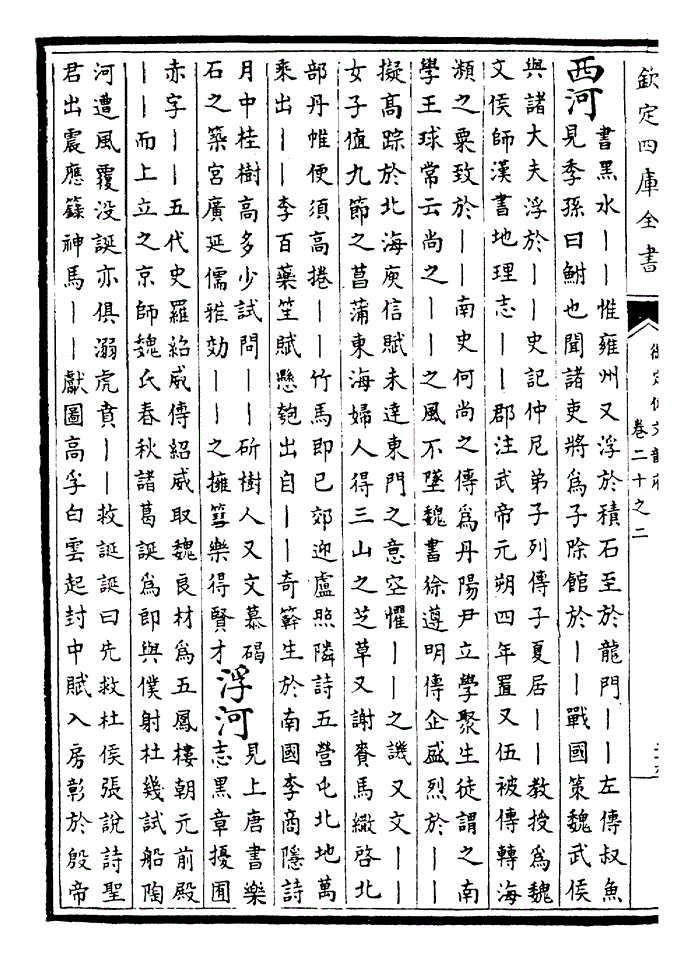 欽定四庫全書
卷二十之二
西河
書黑水――惟雍州又浮於積石至於龍門――左傳叔魚
見季孫曰鮒也聞諸吏將為子除館於――戰國策魏武侯
與諸大夫浮於――史記仲尼弟子列傳子夏居――教授為魏
文侯師漢書地理志――郡注武帝元朔四年置又伍被傳轉海
瀕之粟致於――南史何尚之傳為丹陽尹立學聚生徒謂之南
學王球常云尚之――之風不墜魏書徐遵明傳企盛烈於――
擬高踪於北海庾信賦未達東門之意空懼――之譏又文――
女子值九節之菖蒲東海婦人得三山之芝草又謝賚馬繖啓北
部丹帷便須高捲――竹馬即已郊迎盧照隣詩五營屯北地萬
乘出――李百藥笙賦懸匏出自――奇簳生於南國李商隱詩
月中桂樹高多少試問――斫樹人又文慕碣
石之築宮廣延儒雅効――之擁篲樂得賢才
浮河
見上唐書樂
志黑章擾囿
赤字――五代史羅紹威傳紹威取魏良材為五鳳樓朝元前殿
――而上立之京師魏氏春秋諸葛誕為郎與僕射杜畿試船陶
河遭風覆没誕亦俱溺虎賁――救誕誕曰先救杜侯張說詩聖
君出震應籙神馬――獻圖高孚白雲起封中賦入房彰於殷帝